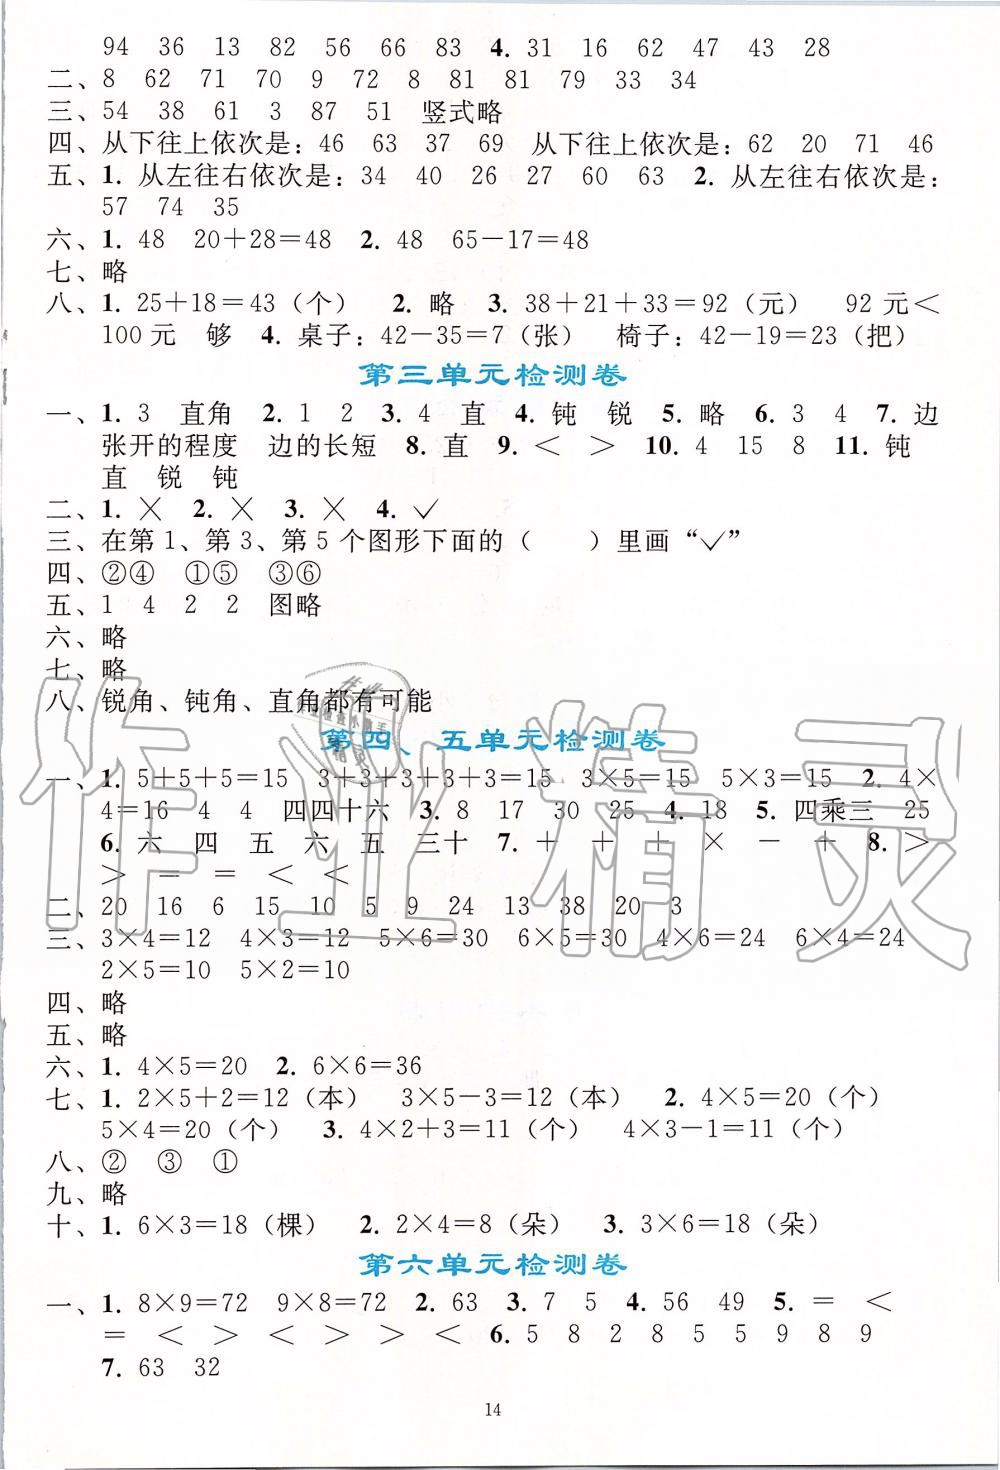 94 36 13 82 56 66 83 4. 31 16 62 47 43 28
二、8 62 71 70 9 72 8 81 81 79 33 34
三、54 38 61 3 87 51 竖式略
四、从下往上依次是：46 63 37 69 从下往上依次是：62 20 71 46
五、1. 从左往右依次是：34 40 26 27 60 63 2. 从左往右依次是：
57 74 35
六、1. 48 20+28=48 2. 48 65-17=48
七、略
八、1. 25+18=43（个） 2. 略 3. 38+21+33=92（元） 92元<
100元 够 4. 桌子：42-35=7（张） 椅子：42-19=23（把）
第三单元检测卷
一、1. 3 直角 2. 1 2 3. 4 直 4. 钝 锐 5. 略 6. 3 4 7. 边
张开的程度 边的长短 8. 直 9. < > 10. 4 15 8 11. 钝
直 锐 钝
二、1. × 2. × 3. × 4. ✓
三、在第1、第3、第5个图形下面的（ ）里画“✓”
四、②④ ①⑤ ③⑥
五、1 4 2 2 图略
六、略
七、略
八、锐角、钝角、直角都有可能
第四、五单元检测卷
一、1. 5+5+5=15 3+3+3+3+3=15 3×5=15 5×3=15 2. 4×
4=16 4 4 四四十六 3. 8 17 30 25 4. 18 5. 四乘三 25
6. 六 四 五 六 五 三十 7. + + + × - + 8. >
> = = < <
二、20 16 6 15 10 5 9 24 13 38 20 3
三、3×4=12 4×3=12 5×6=30 6×5=30 4×6=24 6×4=24
2×5=10 5×2=10
四、略
五、略
六、1. 4×5=20 2. 6×6=36
七、1. 2×5+2=12（本） 3×5-3=12（本） 2. 4×5=20（个）
5×4=20（个） 3. 4×2+3=11（个） 4×3-1=11（个）
八、② ③ ①
九、略
十、1. 6×3=18（棵） 2. 2×4=8（朵） 3. 3×6=18（朵）
第六单元检测卷
一、1. 8×9=72 9×8=72 2. 63 3. 7 5 4. 56 49 5. = <
= < > < > > < 6. 5 8 2 8 5 5 9 8 9
7. 63 32
14
作业精灵